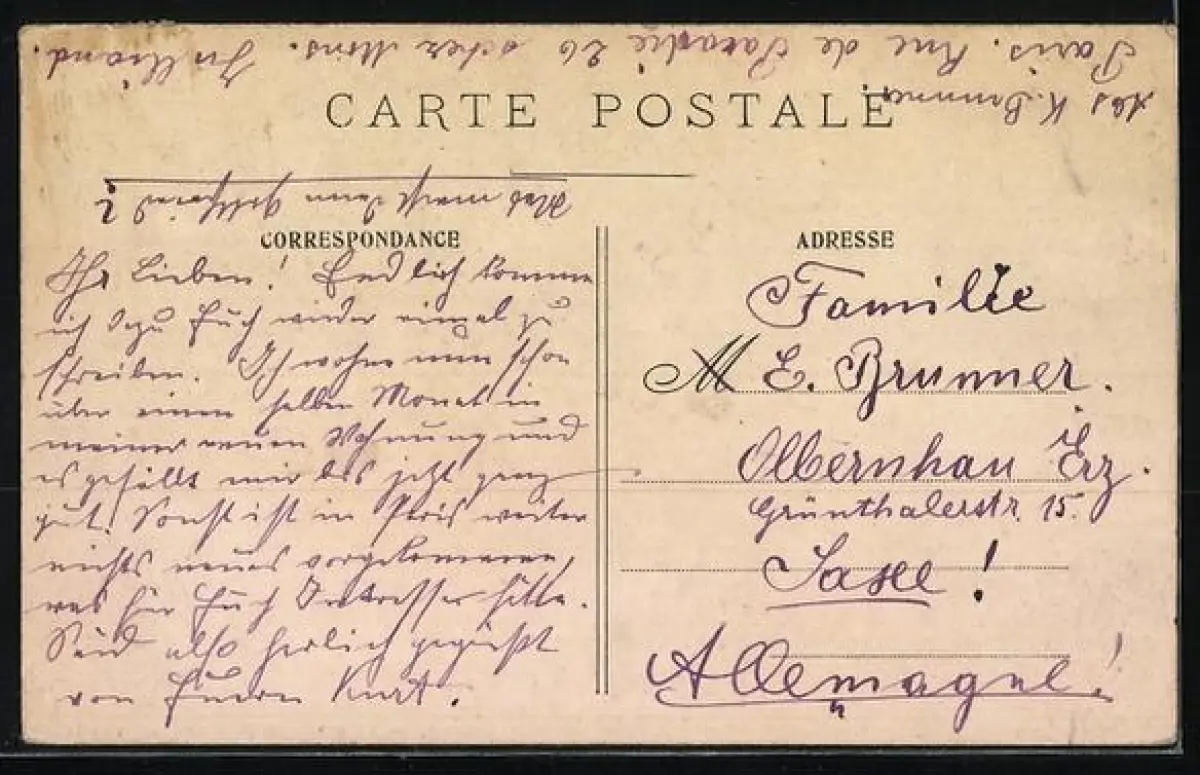 Abs K. Brunner
Paris. Rue de Paradis 26 Mons.
CARTE POSTALE
Was macht denn Gottfried?
CORRESPONDANCE
Ihr Lieben! Endlich komme
ich dazu Euch wieder einmal zu
schreiben. Ich wohne nun schon
über einen halben Monat in
meiner neuen Wohnung und
es gefällt mir bis jetzt ganz
gut. Sonst ist in Paris weiter
nichts neues vorgekommen,
was für Euch Interesse hätte.
Seid also herzlich gegrüßt
von Euern Kurt.
ADRESSE
Familie
M E. Brunner.
Olbernhau i. Erz.
Grünthalerstr. 15.
Saxe!
Allemagne!